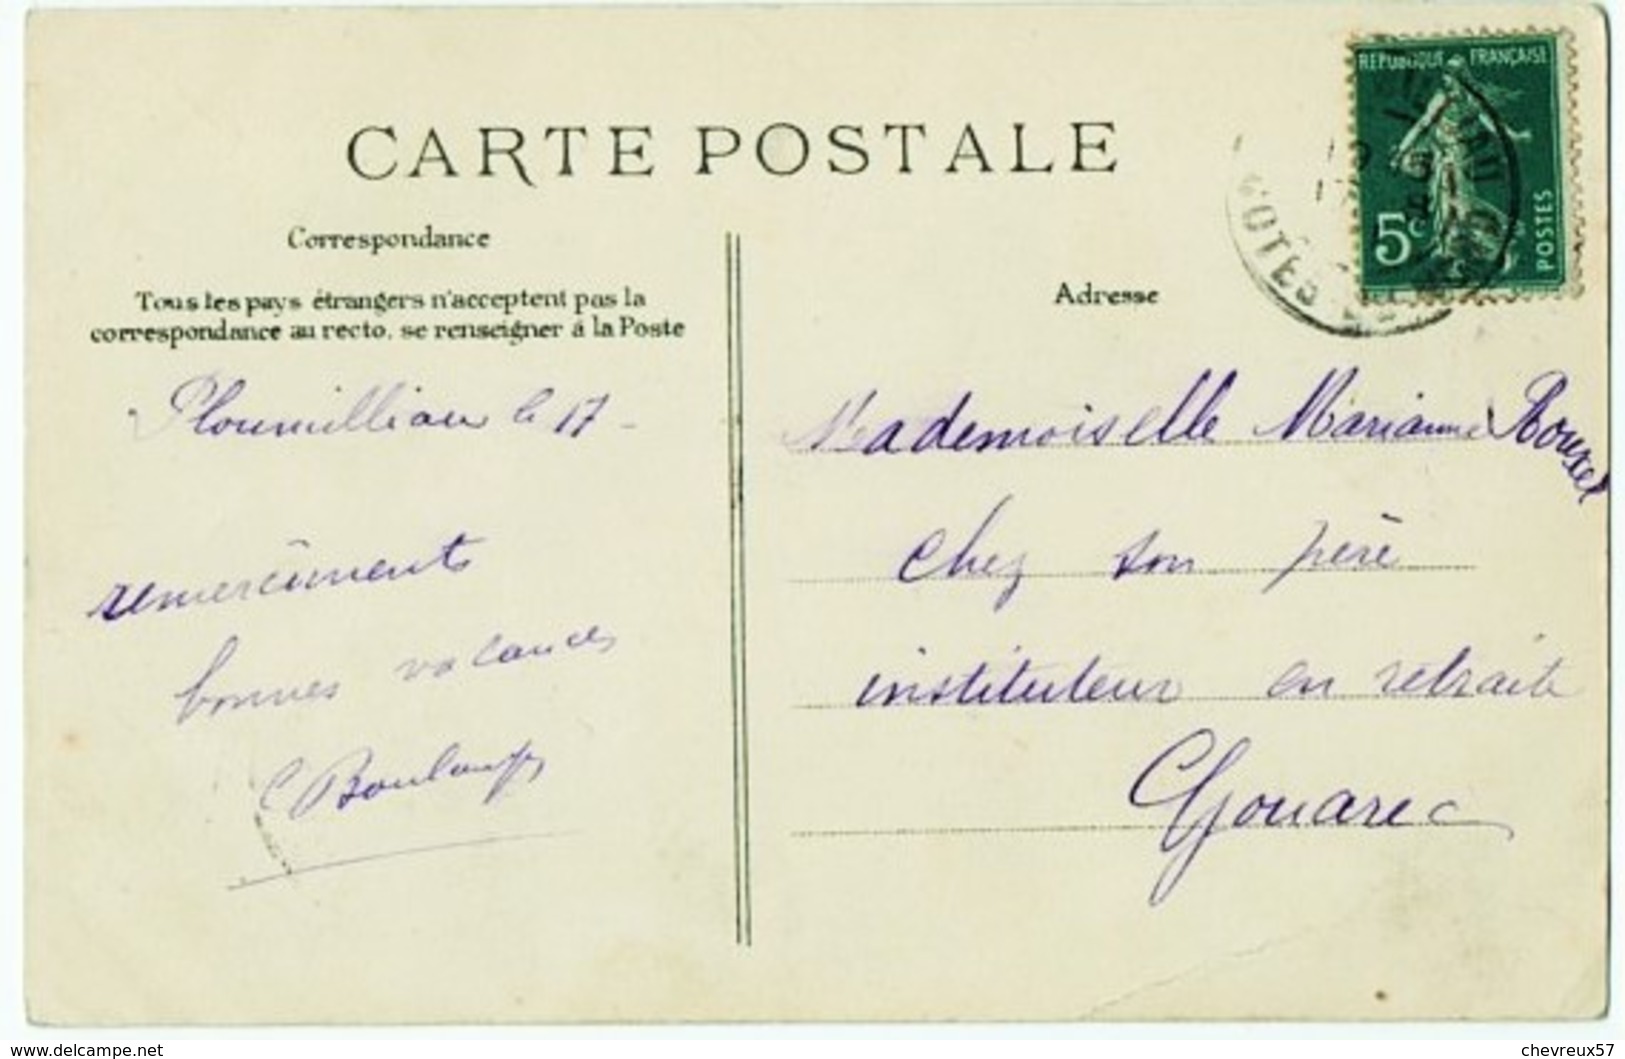 CARTE POSTALE
REPUBLIQUE FRANÇAISE
5c
POSTES
CÔTES
Correspondance
Tous les pays étrangers n'acceptent pas la
correspondance au recto, se renseigner à la Poste
Ploumilliau le 17
remerciments
bonnes vacances
Adresse
Mademoiselle Marianne Rouxel
chez son père
instituteur en retraite
Gouarec
www.delcampe.net
chevreux57